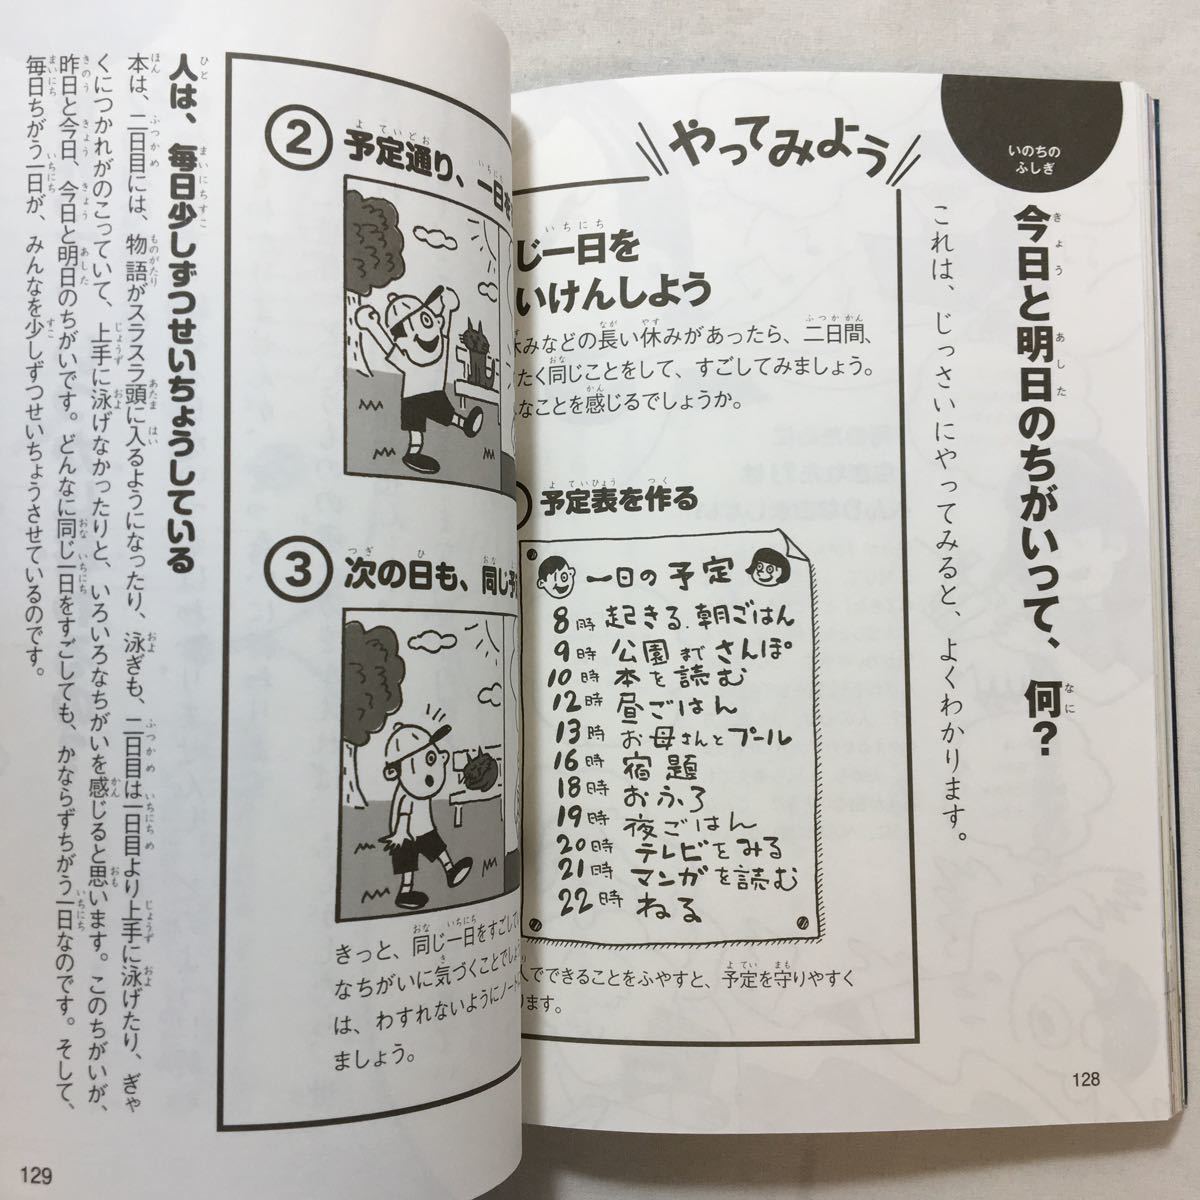 いのちの
ふしぎ
今日と明日のちがいって、何?
これは、じっさいにやってみると、よくわかります。
やってみよう
じ一日を
いけんしよう
休みなどの長い休みがあったら、二日間、
たく同じことをして、すごしてみましょう。
なことを感じるでしょうか。
予定表を作る
一日の予定
8時 起きる、朝ごはん
9時 公園までさんぽ
10時 本を読む
12時 昼ごはん
13時 お母さんとプール
16時 宿題
18時 おふろ
19時 夜ごはん
20時 テレビをみる
21時 マンガを読む
22時 ねる
人でできることをふやすと、予定を守りやすく
ります。
128
② 予定通り、一日を
③ 次の日も、同じ予
きっと、同じ一日をすごしてい
なちがいに気づくことでしょ
は、わすれないようにノート
ましょう。
人は、毎日少しずつせいちょうしている
本は、二日目には、物語がスラスラ頭に入るようになったり、泳ぎも、二日目は一日目より上手に泳げたり、ぎゃ
くにつかれがのこっていて、上手に泳げなかったりと、いろいろなちがいを感じると思います。このちがいが、
昨日と今日、今日と明日のちがいです。どんなに同じ一日をすごしても、かならずちがう一日なのです。そして、
毎日ちがう一日が、みんなを少しずつせいちょうさせているのです。
129